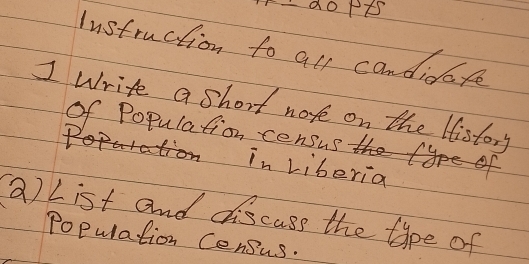 20 pts
Instruction to all candidate
1 Write a short note on the History
of Population census the type of
Population in Liberia
(2) List and discuss the type of
Population Census.